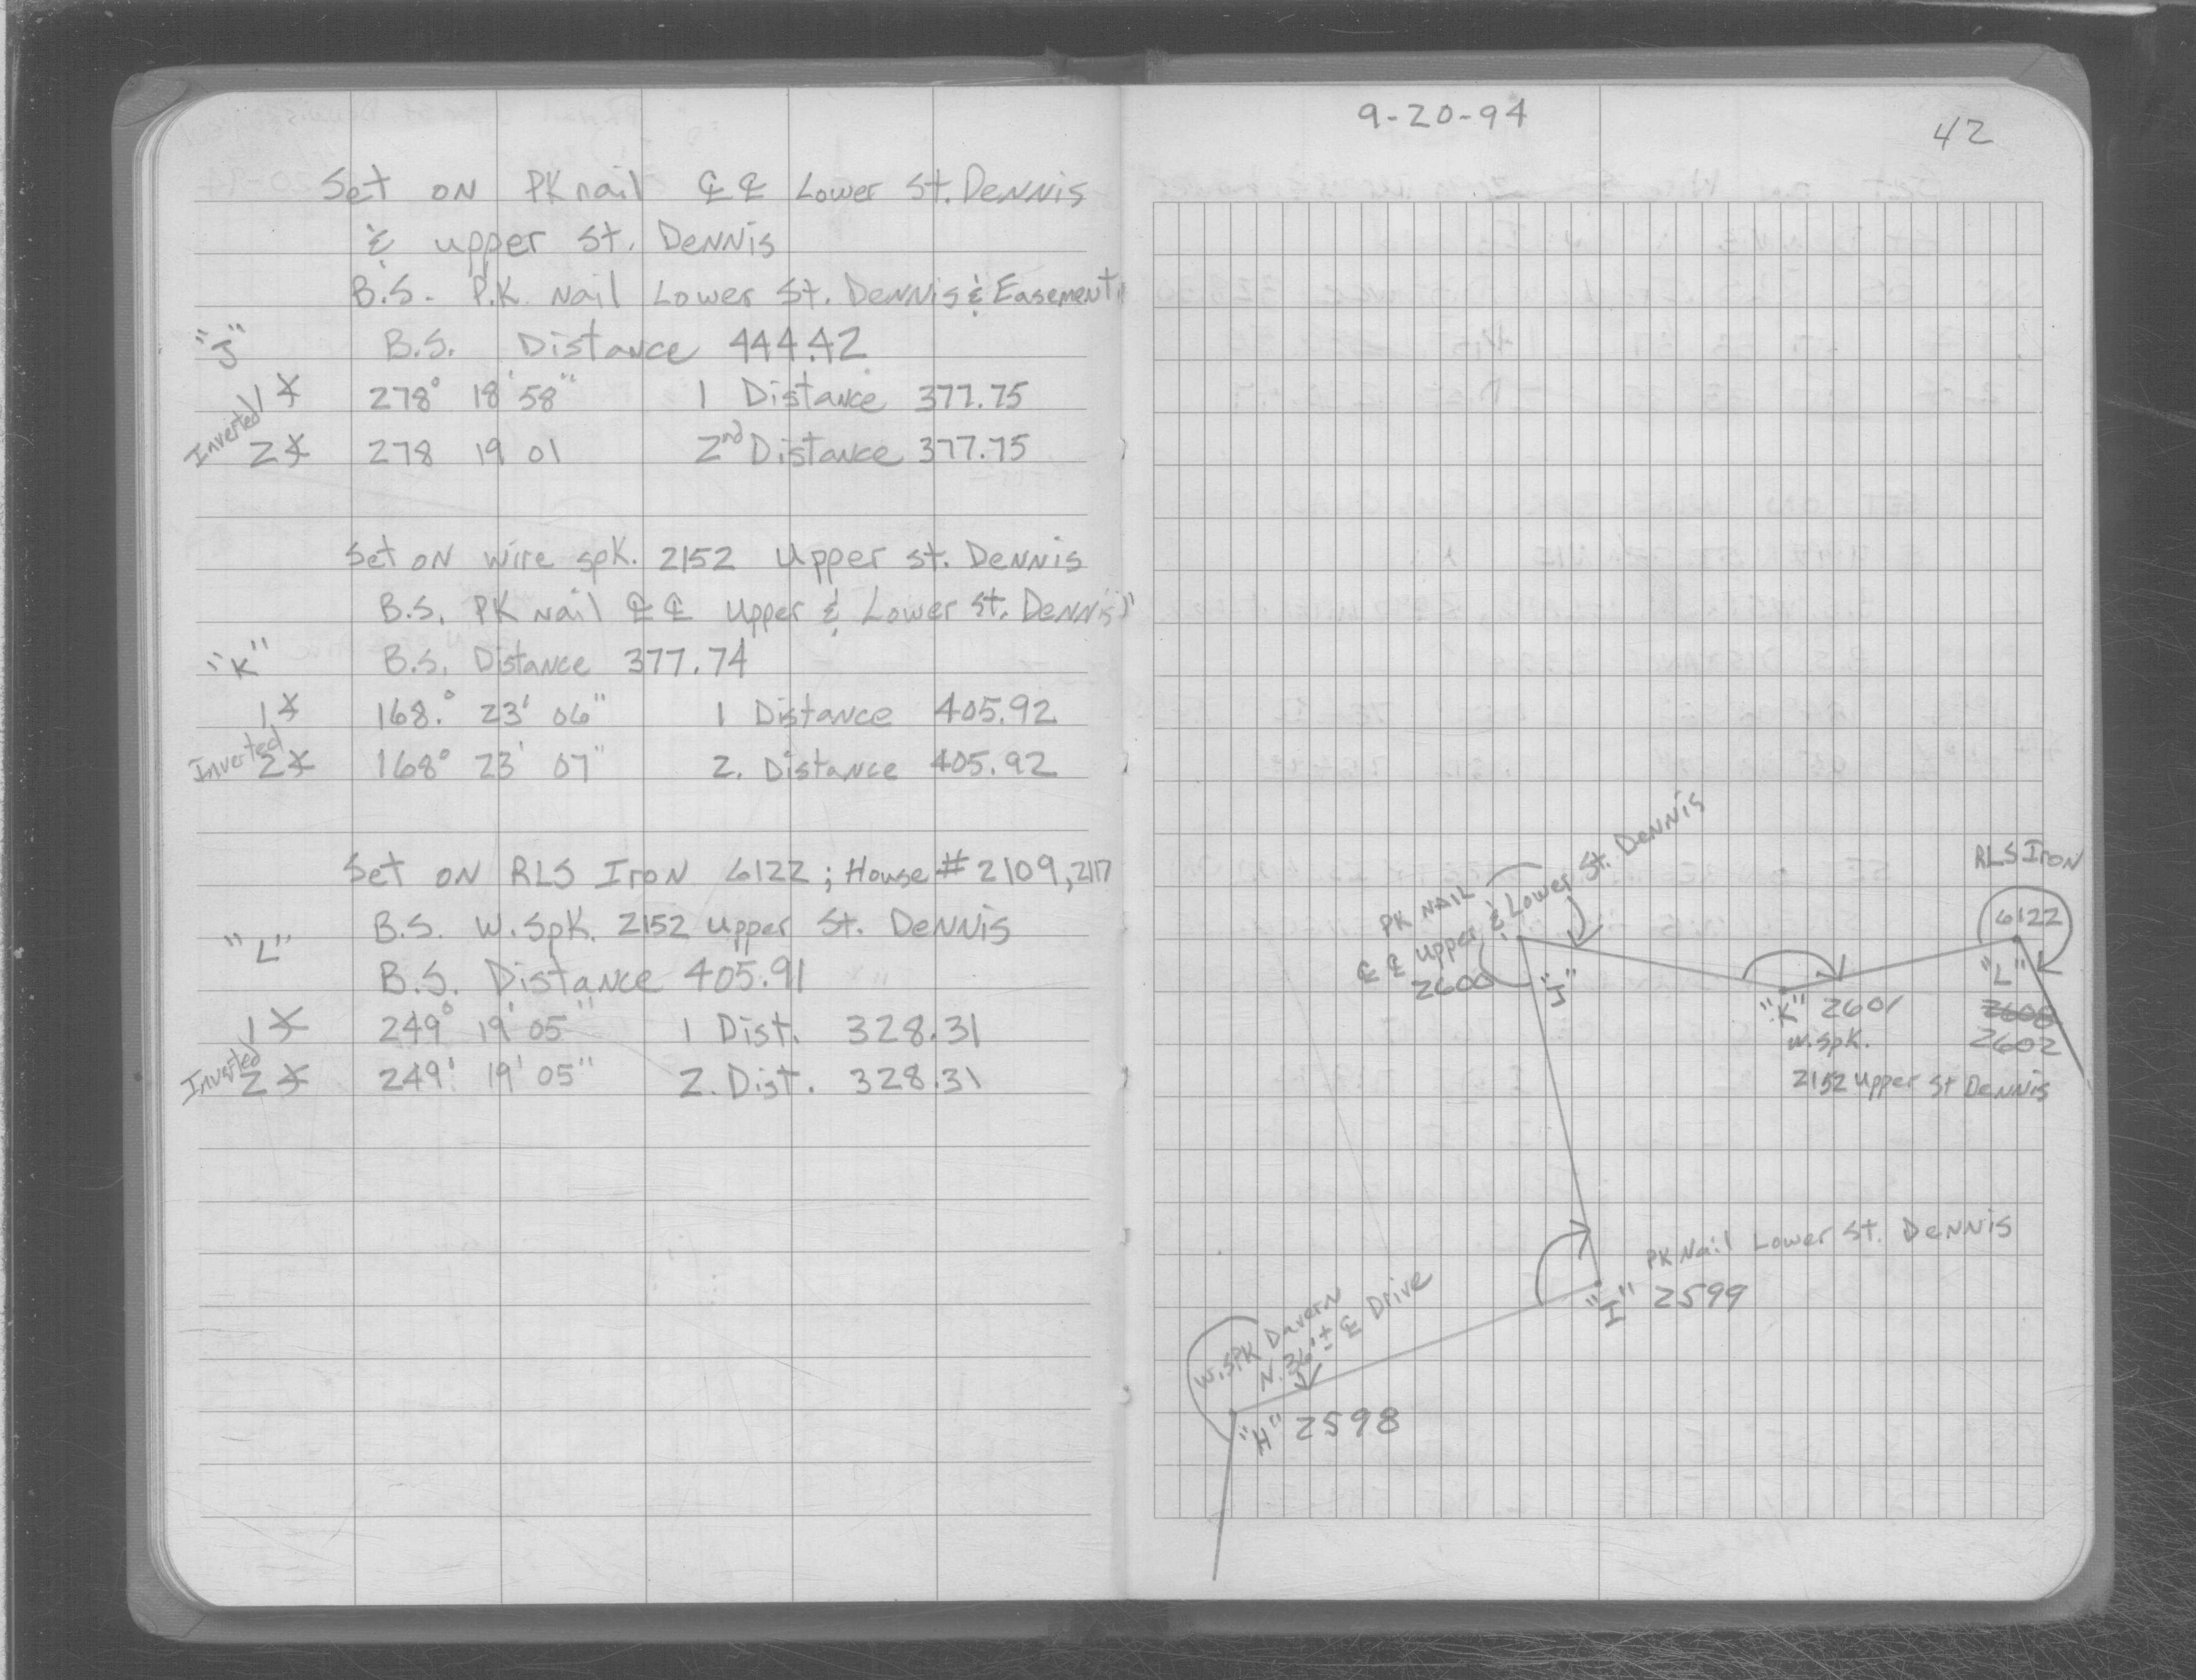 Set ON PK nail ℄ ℄ Lower St. DENNIS
& upper St. DENNIS
B.S. P.K. Nail Lower St. DENNIS & EasemenT
"J"
B.S. Distance 444.42
1 ∡ 278° 18' 58" 1 Distance 377.75
Inverted 2 ∡ 278 19 01 2nd Distance 377.75
Set ON wire spk. 2152 Upper st. DENNIS
B.S. PK Nail ℄ ℄ Upper & Lower St. DENNIS
"K"
B.S. Distance 377.74
1 ∡ 168.° 23' 06" 1 Distance 405.92
Inverted 2 ∡ 168° 23' 07" 2. Distance 405.92
Set ON RLS IroN 6122 ; House # 2109, 2117
B.S. W.Spk. 2152 upper St. DENNIS
"L"
B.S. Distance 405.91
1 ∡ 249° 19' 05" 1 Dist. 328.31
Inverted 2 ∡ 249° 19' 05" 2. Dist. 328.31
9-20-94
42
PK NAIL
℄ ℄ Upper & Lower St. DENNIS
2600
"J"
RLS IroN
6122
"L"
2602
"K" 2601
W.spk.
2152 Upper St DENNIS
PK Nail Lower St. DENNIS
"I" 2599
W.SPK Davern
N. 36'± ℄ Drive
"H" 2598